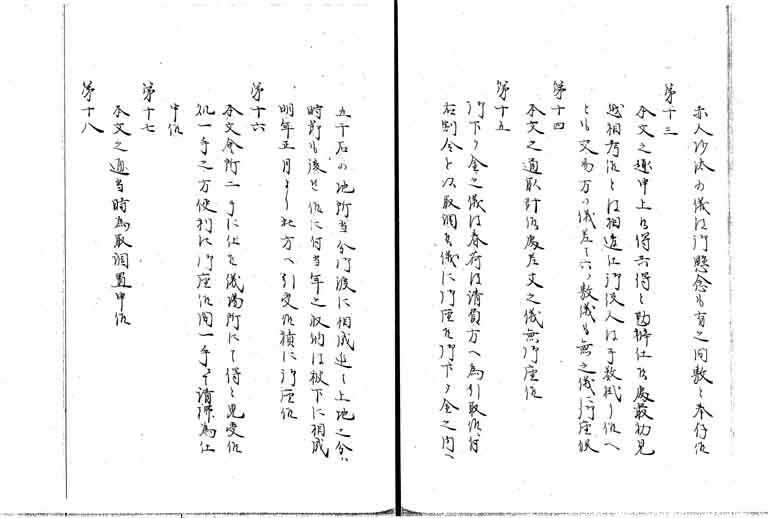 亦人沙汰の儀は御懸念も有之間敷と奉存候
第十三
本文之趣申上候得共得と勘弁仕候処最初見
込相考候とは相違仕御役人は手数掛り候へ
とも交易方の儀差て六ケ敷儀も無之儀に御座候
第十四
本文之通取計候処差支之儀無御座候
第十五
御下ケ金之儀は春荷は請負方へ為引取候付
右割合を以取調候儀に御座候御下ケ金之内へ
五千石の地所当分御渡に相成近く上地之分は
時節も後れ候に付当年之収納は被下に相成
明年正月より此方へ引受候積に御座候
第十六
本文会所二手に仕候儀場所にて得と見受候
処一手之方便利に御座候間一手にて請払為仕
申候
第十七
本文之通当時為取調置申候
第十八